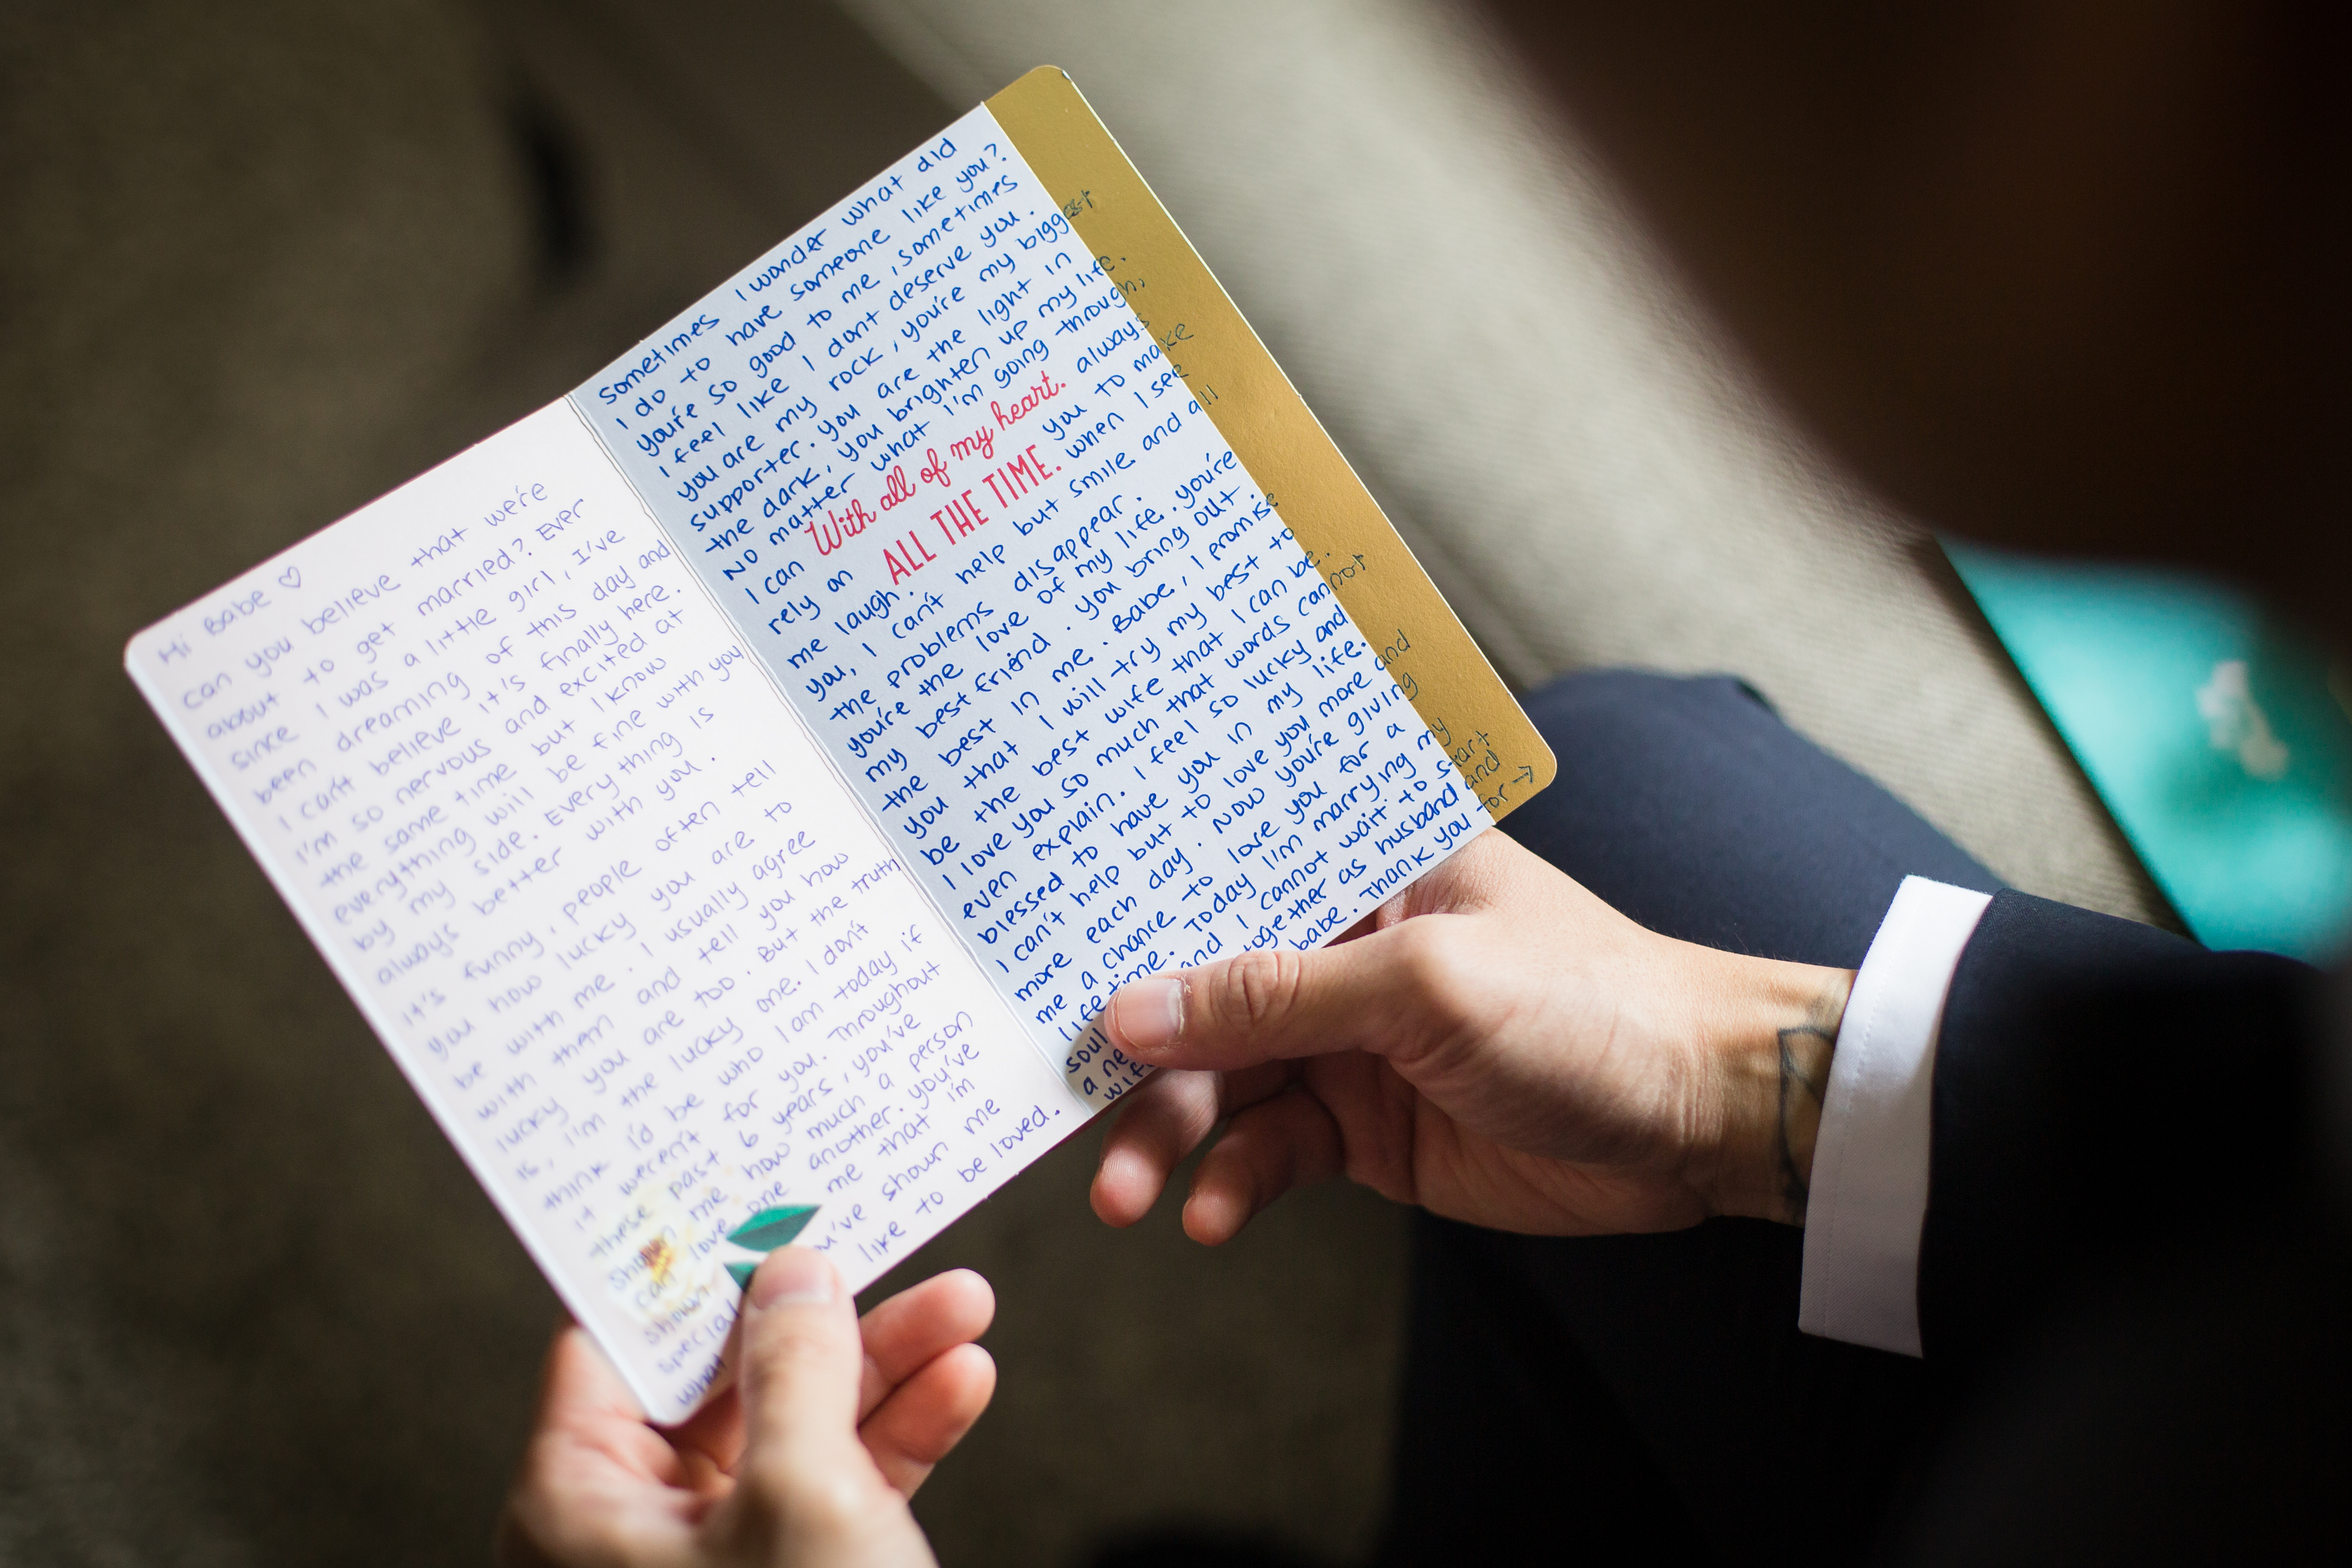 Hi Babe ♡
can you believe that we're
about to get married? Ever
since I was a little girl, I've
been dreaming of this day and
I can't believe it's finally here.
I'm so nervous and excited at
the same time but I know
everything will be fine with you
by my side. Everything is
always better with you.
It's funny, people often tell
you how lucky you are to
be with me. I usually agree
with them and tell you how
lucky you are too. But the truth
is, I'm the lucky one. I don't
think I'd be who I am today if
it weren't for you. Throughout
these past 6 years, you've
shown me how much a person
can love one another. you've
shown me that I'm
special you've shown me
what like to be loved.
sometimes I wonder what did
I do to have someone like you?
you're so good to me, sometimes
I feel like I don't deserve you.
you are my rock, you're my biggest
supporter. you are the light in
the dark, you brighten up my life.
No matter what I'm going through,
I can always
rely on you to make
me laugh. when I see
With all of my heart.
ALL THE TIME.
you, I can't help but smile and all
the problems disappear.
you're the love of my life. you're
my best friend. you bring out
the best in me. Babe, I promise
you that I will try my best to
be the best wife that I can be.
I love you so much that words cannot
even explain. I feel so lucky and
blessed to have you in my life.
I can't help but to love you more and
more each day. Now you're giving
me a chance to love you for a
lifetime. Today I'm marrying my
soul and I cannot wait to start
a ne together as husband and
wife babe. Thank you for →